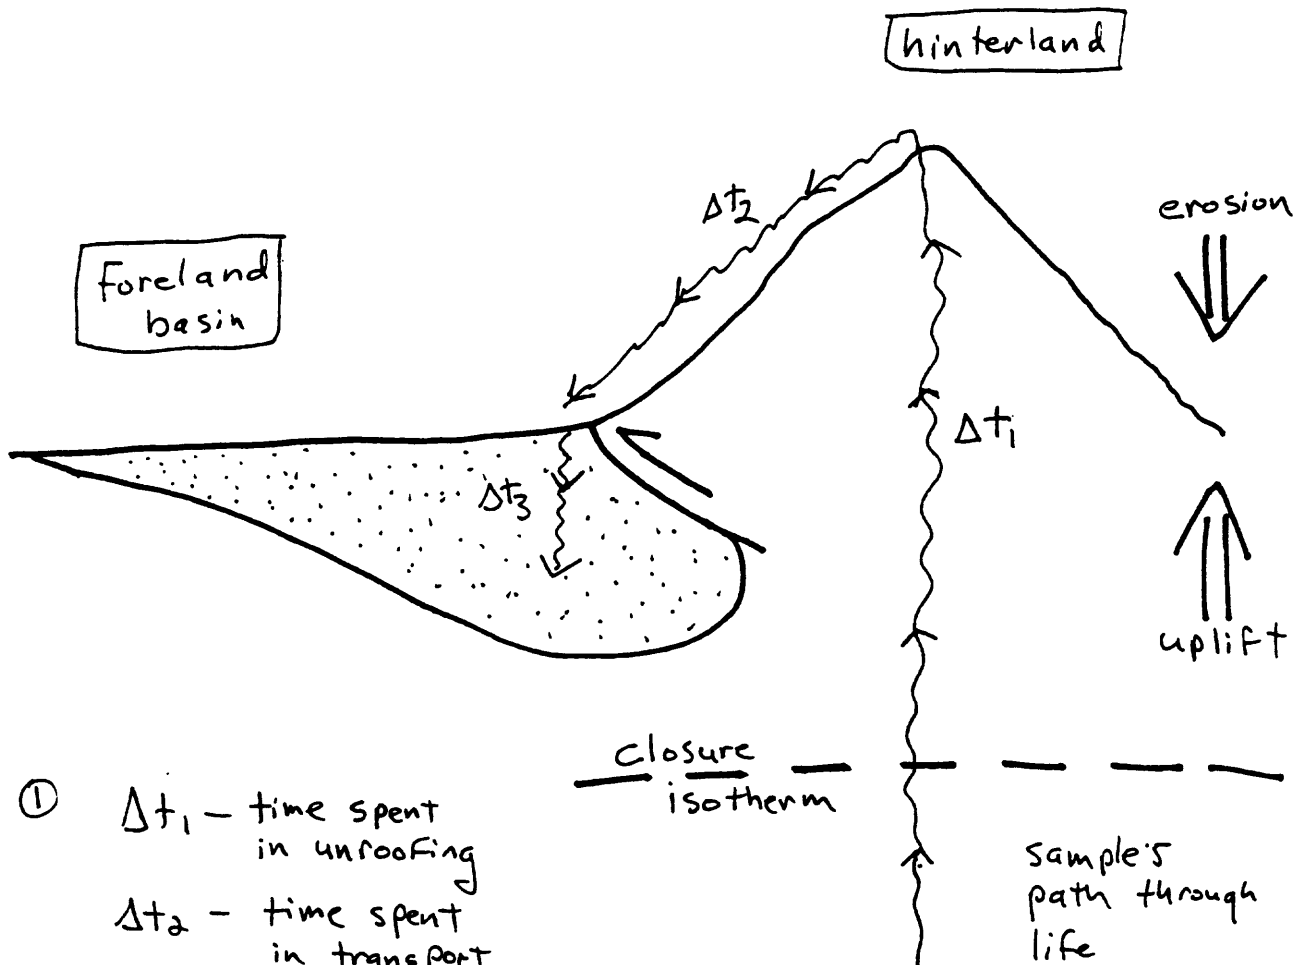 hinterland
erosion
Δt2
foreland
basin
Δt1
Δt3
uplift
closure
isotherm
① Δt1 – time spent
in unroofing
Δt2 – time spent
in transport
sample's
path through
life